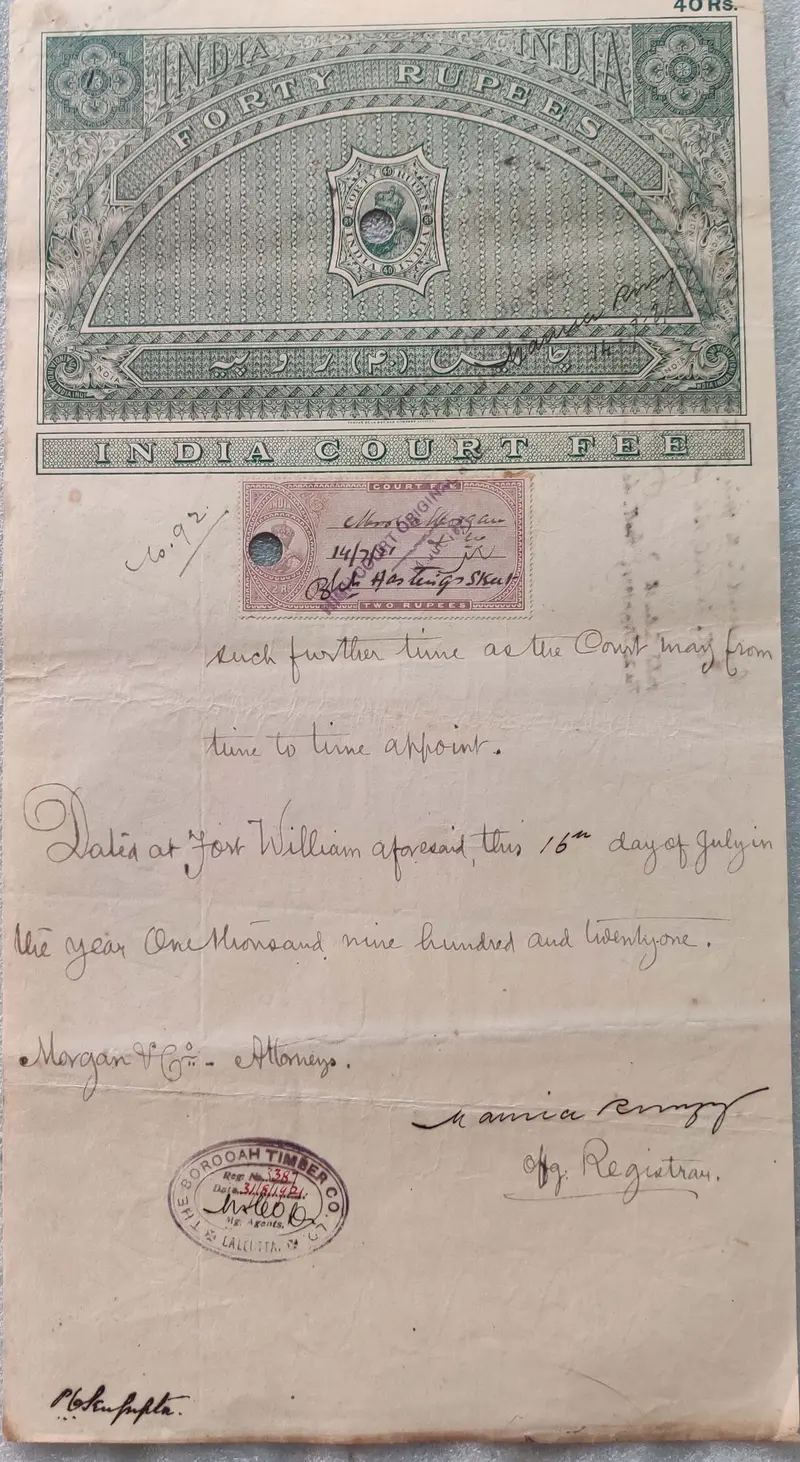 40 RS.
INDIA INDIA
FORTY RUPEES
FORTY RUPEES
INDIA 40 INDIA
چالیس (۴۰) روپیہ
INDIA COURT FEE
No. 92
COURT FEE
INDIA
Morgan
HIGH COURT ORIGINAL
Hastings Street
TWO RUPEES
such further time as the Court may from
time to time appoint.
Dated at Fort William aforesaid, this 16th day of July in
the year One thousand nine hundred and twenty one.
Morgan & Co. - Attorneys.
Offg. Registrar.
THE BOROOAH TIMBER CO. LD.
Reg. No. 387
Date 31/8/1921
Mg. Agents.
CALCUTTA.
P C Sen Gupta.